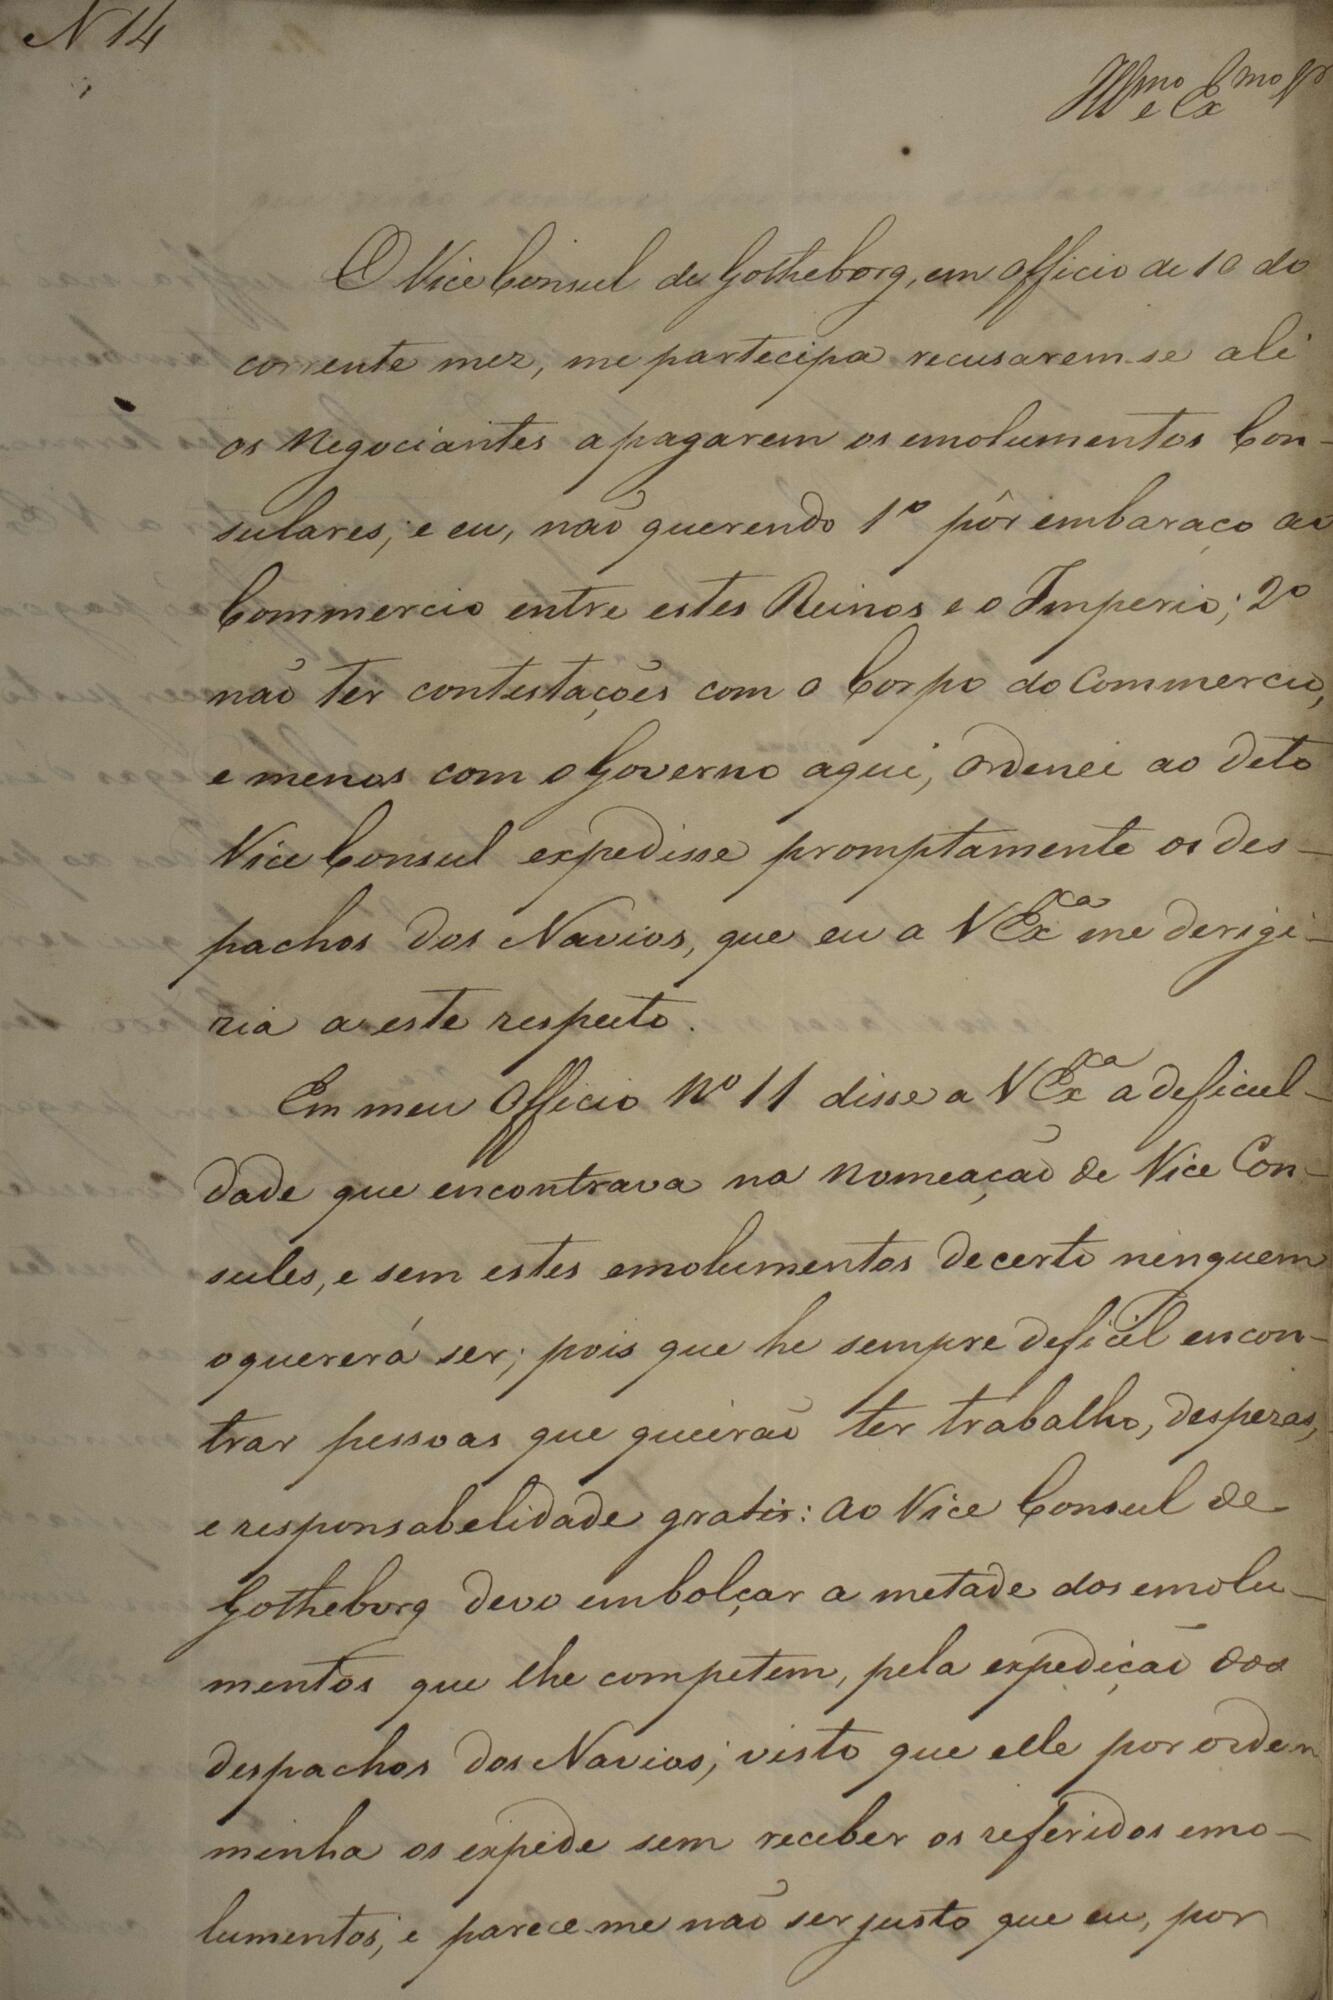 N 14
Illmo e Exmo Sr
O Vice Consul de Gotheborg, em officio de 10 do
corrente mez, me partecipa recusarem-se ali
os Negociantes a pagarem os emolumentos Con-
sulares; e eu, não querendo 1º pôr embaraço ao
Commercio entre estes Reinos e o Imperio; 2º
não ter contestações com o Corpo do Commercio,
e menos com o Governo aqui, ordenei ao deto
Vice Consul expedisse promptamente os des-
pachos dos Navios, que eu a V Exca me derigi-
ria a este respeito.
Em meu Officio Nº 11 disse a V Exca a deficul-
dade que encontrava na nomeação de Vice Con-
sules, e sem estes emolumentos decerto ninguem
o quererá ser; pois que he sempre deficil encon-
trar pessoas que queirão ter trabalho, despezas,
e responsabelidade gratis: ao Vice Consul de
Gotheborg devo embolçar a metade dos emolu-
mentos que lhe competem, pela expedição dos
despachos dos Navios; visto que elle por ordem
minha os expede sem receber os referidos emo-
lumentos; e parece-me não ser justo que eu, por